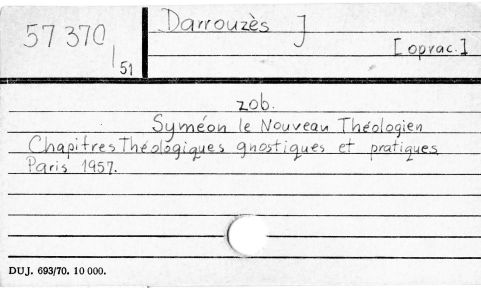 57 370
/51
Darrouzès J
[oprac.]
zob.
Syméon le Nouveau Théologien
Chapitres Théologiques gnostiques et pratiques
Paris 1957.
DUJ. 693/70. 10 000.